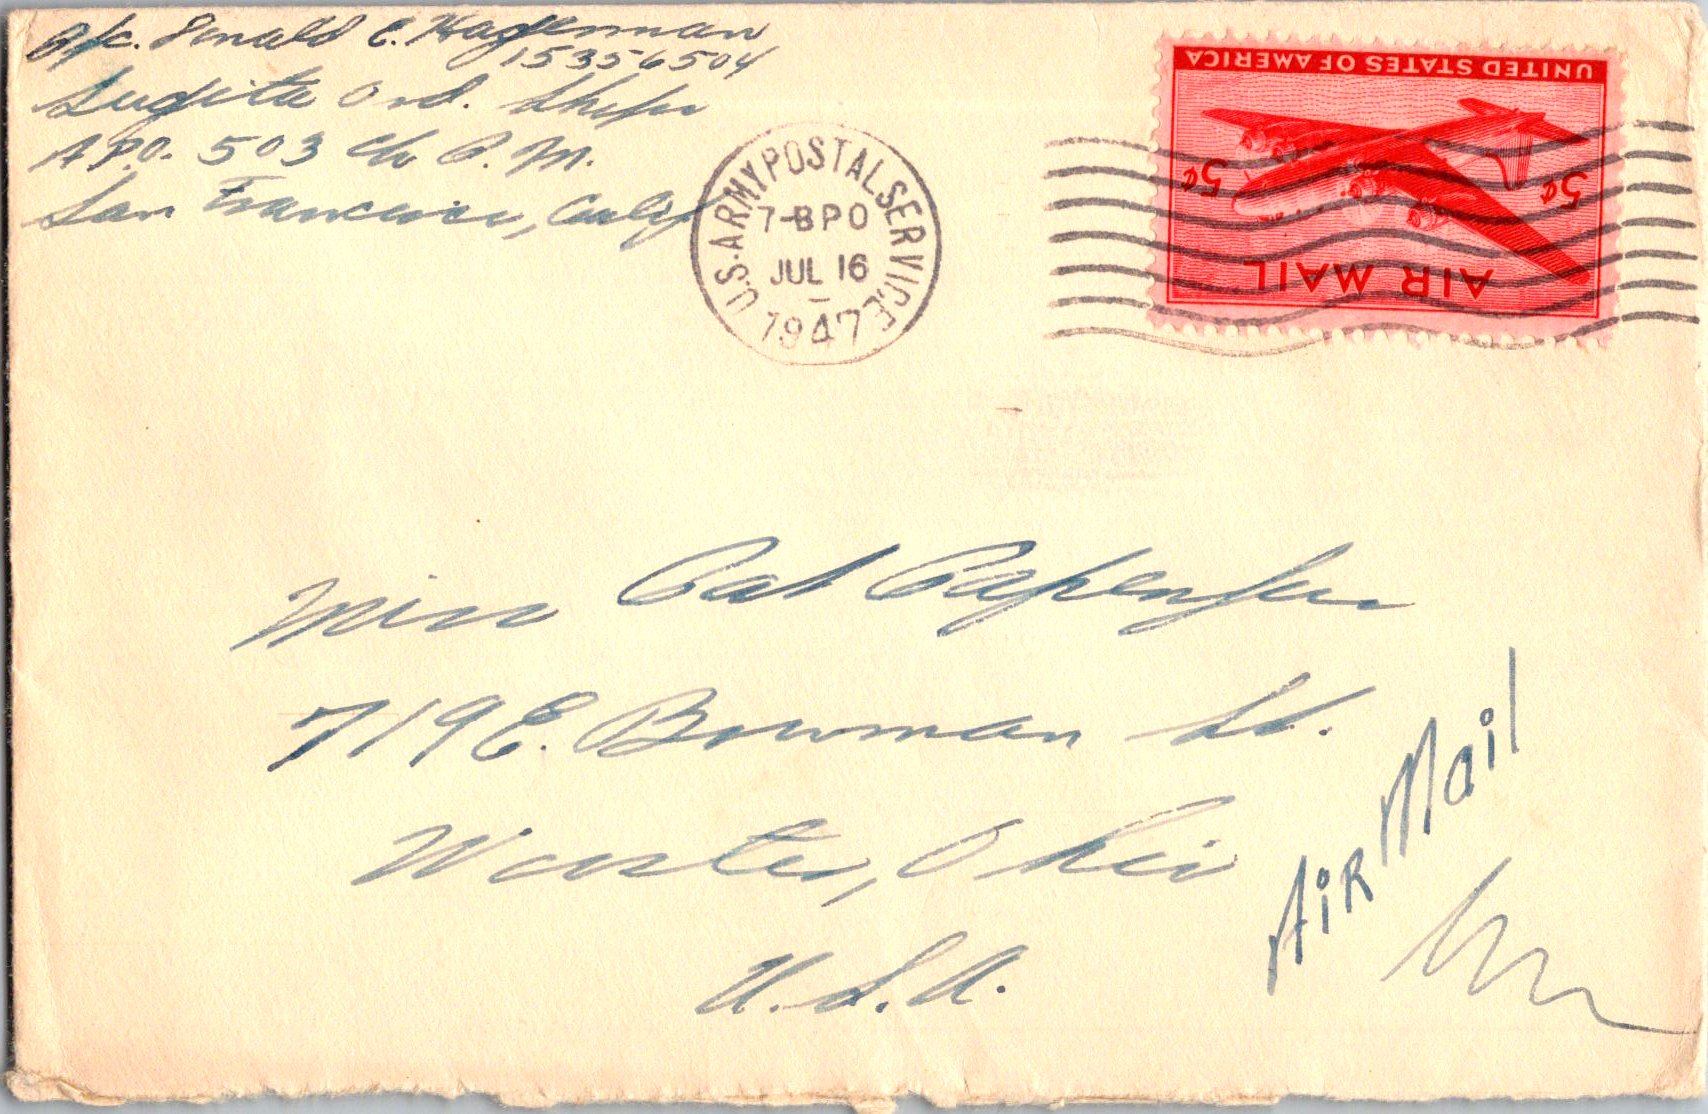 Pfc. Donald E. Hagerman
15356504
Sugita Ord. Shop
A.P.O. 503 c/o P.M.
San Francisco, Calif
U.S. ARMY POSTAL SERVICE
7-BPO
JUL 16
1947
UNITED STATES OF AMERICA
5¢ 5¢
AIR MAIL
Miss Cat Carpenter
719 E. Bowman St.
Wooster, Ohio
U.S.A.
Air Mail